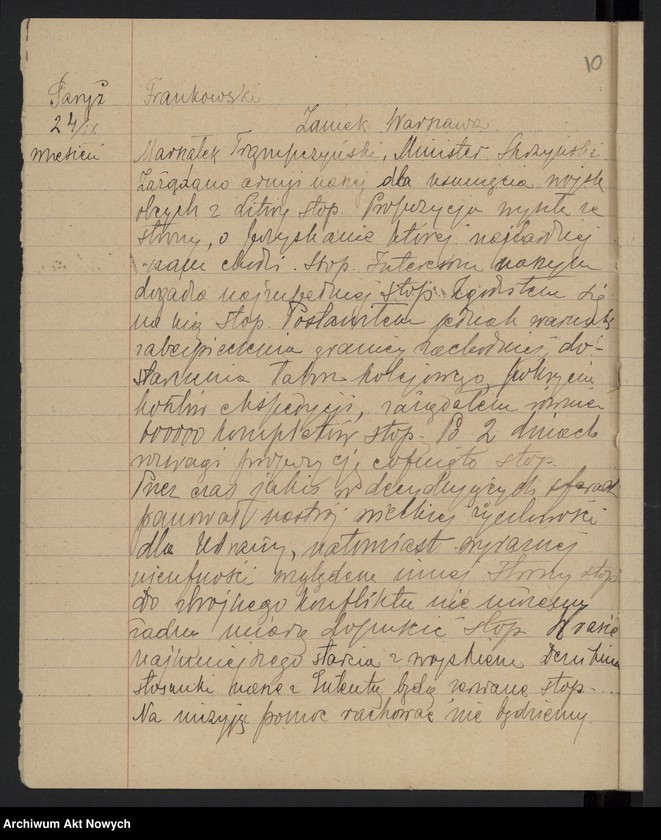 10
Paryż Frankowski
24/IX Zamek Warszawa
wrzesień Marszałek Trąmpczyński, Minister Skrzyński
Zażądano armji naszej dla usunięcia wojsk
obcych z Litwy stop. Propozycja wyszła ze
strony, o pozyskanie której najbardziej
nam chodzi. Stop. Interesom naszym
dogadza najzupełniej stop. Zgodziłem się
na nią stop. Postawiłem jednak warunki
zabezpieczenia granicy zachodniej, do-
starczenia taboru kolejowego, pokrycia
kosztów ekspedycji, zażądałem również
600000 kompletów stop. Po 2 dniach
rozwagi propozycję cofnięto stop.
Przez czas jakiś w decydujących sferach
panował nastrój wielkiej życzliwości
dla Ukrainy, natomiast wyraźnej
nieufności względem innej strony stop.
Do zbrojnego konfliktu nie możemy
żadną miarą dopuścić stop. W razie
najmniejszego starcia z wojskiem Denikina
stosunki nasze z Ententą będą zerwane stop.
Na niczyją pomoc rachować nie będziemy
Archiwum Akt Nowych